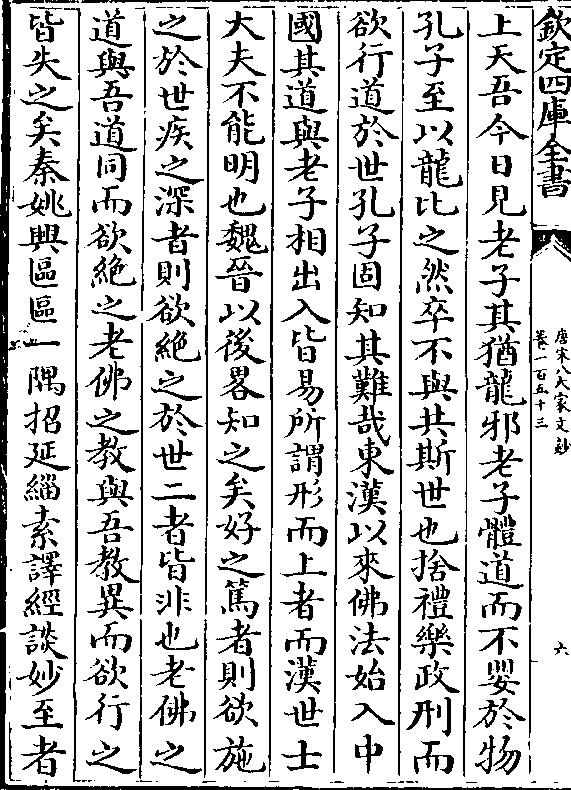 欽定四庫全書
唐宋八大家文鈔
卷一百五十三
六
上天吾今日見老子其猶龍邪老子體道而不嬰於物
孔子至以龍比之然卒不與共斯世也捨禮樂政刑而
欲行道於世孔子固知其難哉東漢以來佛法始入中
國其道與老子相出入皆易所謂形而上者而漢世士
大夫不能明也魏晉以後畧知之矣好之篤者則欲施
之於世疾之深者則欲絶之於世二者皆非也老佛之
道與吾道同而欲絶之老佛之教與吾教異而欲行之
皆失之矣秦姚興區區一隅招延緇素譯經談妙至者